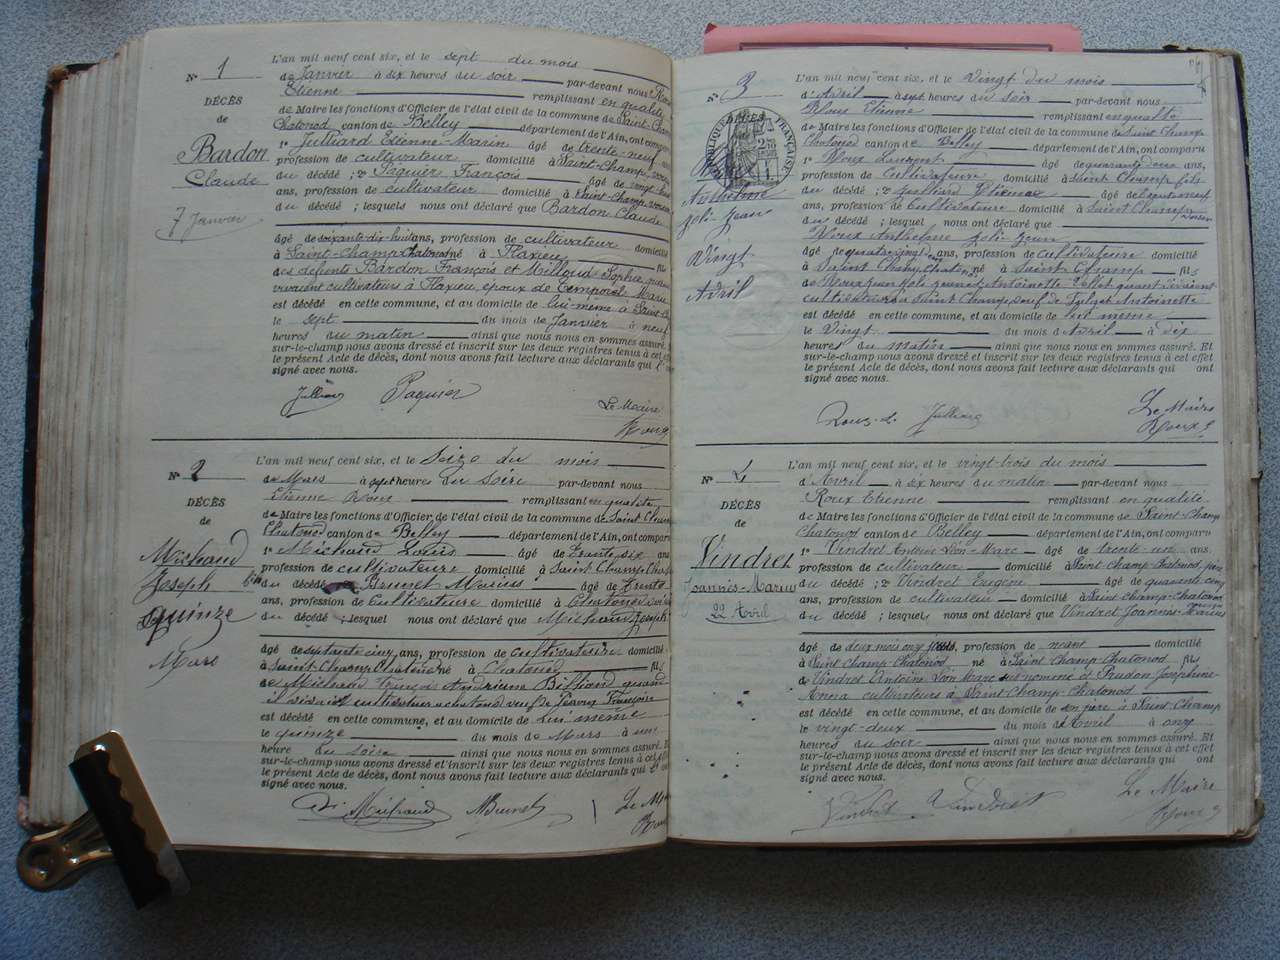 N° 1
DÉCÈS
de
Bardon
Claude
7 Janvier
L'an mil neuf cent six, et le sept du mois
de Janvier à six heures du soir par-devant nous Roux
Etienne remplissant en qualité
de Maire les fonctions d'Officier de l'état civil de la commune de Saint-Champ
Chatonod canton de Belley département de l'Ain, ont comparu
1° Julliard Etienne-Marin âgé de trente-neuf
profession de cultivateur domicilié à Saint-Champ,
du décédé ; 2° Paquier François âgé de vingt
ans, profession de cultivateur domicilié à Saint-Champ,
du décédé ; lesquels nous ont déclaré que Bardon Claude
âgé de soixante-dix-huit ans, profession de cultivateur domicilié
à Saint-Champ Chatonod né à Flaxieu fils
des défunts Bardon François et Sophie
vivaient cultivateurs à Flaxieu, époux de Marie
est décédé en cette commune, et au domicile de lui-même à Saint-
le sept du mois de Janvier à neuf
heures du matin ainsi que nous nous en sommes assuré. Et
sur-le-champ nous avons dressé et inscrit sur les deux registres tenus à cet
le présent Acte de décès, dont nous avons fait lecture aux déclarants qui
signé avec nous.
Julliard Paquier Le Maire
Roux
N° 2
DÉCÈS
de
Michaud
Joseph
quinze
Mars
L'an mil neuf cent six, et le Seize du mois
de Mars à sept heures du Soire par-devant nous
Etienne Roux remplissant en qualité
de Maire les fonctions d'Officier de l'état civil de la commune de Saint Champ
Chatonod canton de Belley département de l'Ain, ont comparu
1° Michaud Louis âgé de trante six ans
profession de cultivateure domicilié à Saint Champ
du décédé Brunet Marius âgé de trente
ans, profession de Cultivateure domicilié à Chatonod
du décédé ; lesquel nous ont déclaré que Michaud Joseph
âgé de septante cinq ans, profession de cultivateure domicilié
à Saint Champ Chatonod né à Chatonod fils
de Michaud François Andrienne Billiand quand
il vivait cultivateur a chatonod veuf de Françoise
est décédé en cette commune, et au domicile de lui même
le quinze du mois de Mars à une
heure du soire ainsi que nous nous en sommes assuré. Et
sur-le-champ nous avons dressé et inscrit sur les deux registres tenus à cet effet
le présent Acte de décès, dont nous avons fait lecture aux déclarants qui
signé avec nous.
Michaud MBrunet Le Maire
Roux
N° 3
RÉPUBLIQUE FRANÇAISE
Anthelme
Joli-Jean
Vingt
Avril
L'an mil neuf cent six, et le Vingt du mois
d'Avril à sept heures du soir par-devant nous
Roux Etienne remplissant en qualité
de Maire les fonctions d'Officier de l'état civil de la commune de Saint Champ
Chatonod canton de Belley département de l'Ain, ont comparu
1° Roux Laurent âgé de quarante deux ans,
profession de Cultivateure domicilié à Saint Champ fils
du décédé ; 2° Julliard Etienne âgé de
ans, profession de Cultivateure domicilié à Saint Champ voisin
du décédé ; lesquel nous ont déclaré que
Roux Anthelme Joli Jean
âgé de quatre vingt ans, profession de Cultivateure domicilié
à Saint Champ Chatonod né à Saint Champ fils
de Roux Jean Antoinette quant vivaient
cultivateur a Saint Champ veuf de Antoinette
est décédé en cette commune, et au domicile de lui même
le Vingt du mois d'Avril à dix
heures du matin ainsi que nous nous en sommes assuré. Et
sur-le-champ nous avons dressé et inscrit sur les deux registres tenus à cet effet
le présent Acte de décès, dont nous avons fait lecture aux déclarants qui ont
signé avec nous.
Roux-L. Julliard Le Maire
Roux E
N° 4
DÉCÈS
de
Vindret
Joannès-Marius
22 Avril
L'an mil neuf cent six, et le vingt-trois du mois
d'Avril à six heures du matin par-devant nous
Roux Etienne remplissant en qualité
de Maire les fonctions d'Officier de l'état civil de la commune de Saint-Champ
Chatonod canton de Belley département de l'Ain, ont comparu
1° Vindret Antoine Léon-Marc âgé de trente un ans,
profession de cultivateur domicilié à Saint Champ Chatonod, père
du décédé ; 2° Vindret Eugène âgé de quarante cinq
ans, profession de cultivateur domicilié à Saint-Champ-Chatonod
du décédé ; lesquels nous ont déclaré que Vindret Joannès Marius
âgé de deux mois onz jours, profession de néant domicilié
à Saint Champ Chatonod né à Saint Champ Chatonod fils
de Vindret Antoine Léon Marc susnommé et Prudon Joséphine-
Anna cultivateurs à Saint-Champ-Chatonod
est décédé en cette commune, et au domicile de son père à Saint-Champ
le vingt-deux du mois d'Avril à onz
heures du soir ainsi que nous nous en sommes assuré. Et
sur-le-champ nous avons dressé et inscrit sur les deux registres tenus à cet effet
le présent Acte de décès, dont nous avons fait lecture aux déclarants qui ont
signé avec nous.
Vindret Vindret Le Maire
Roux E